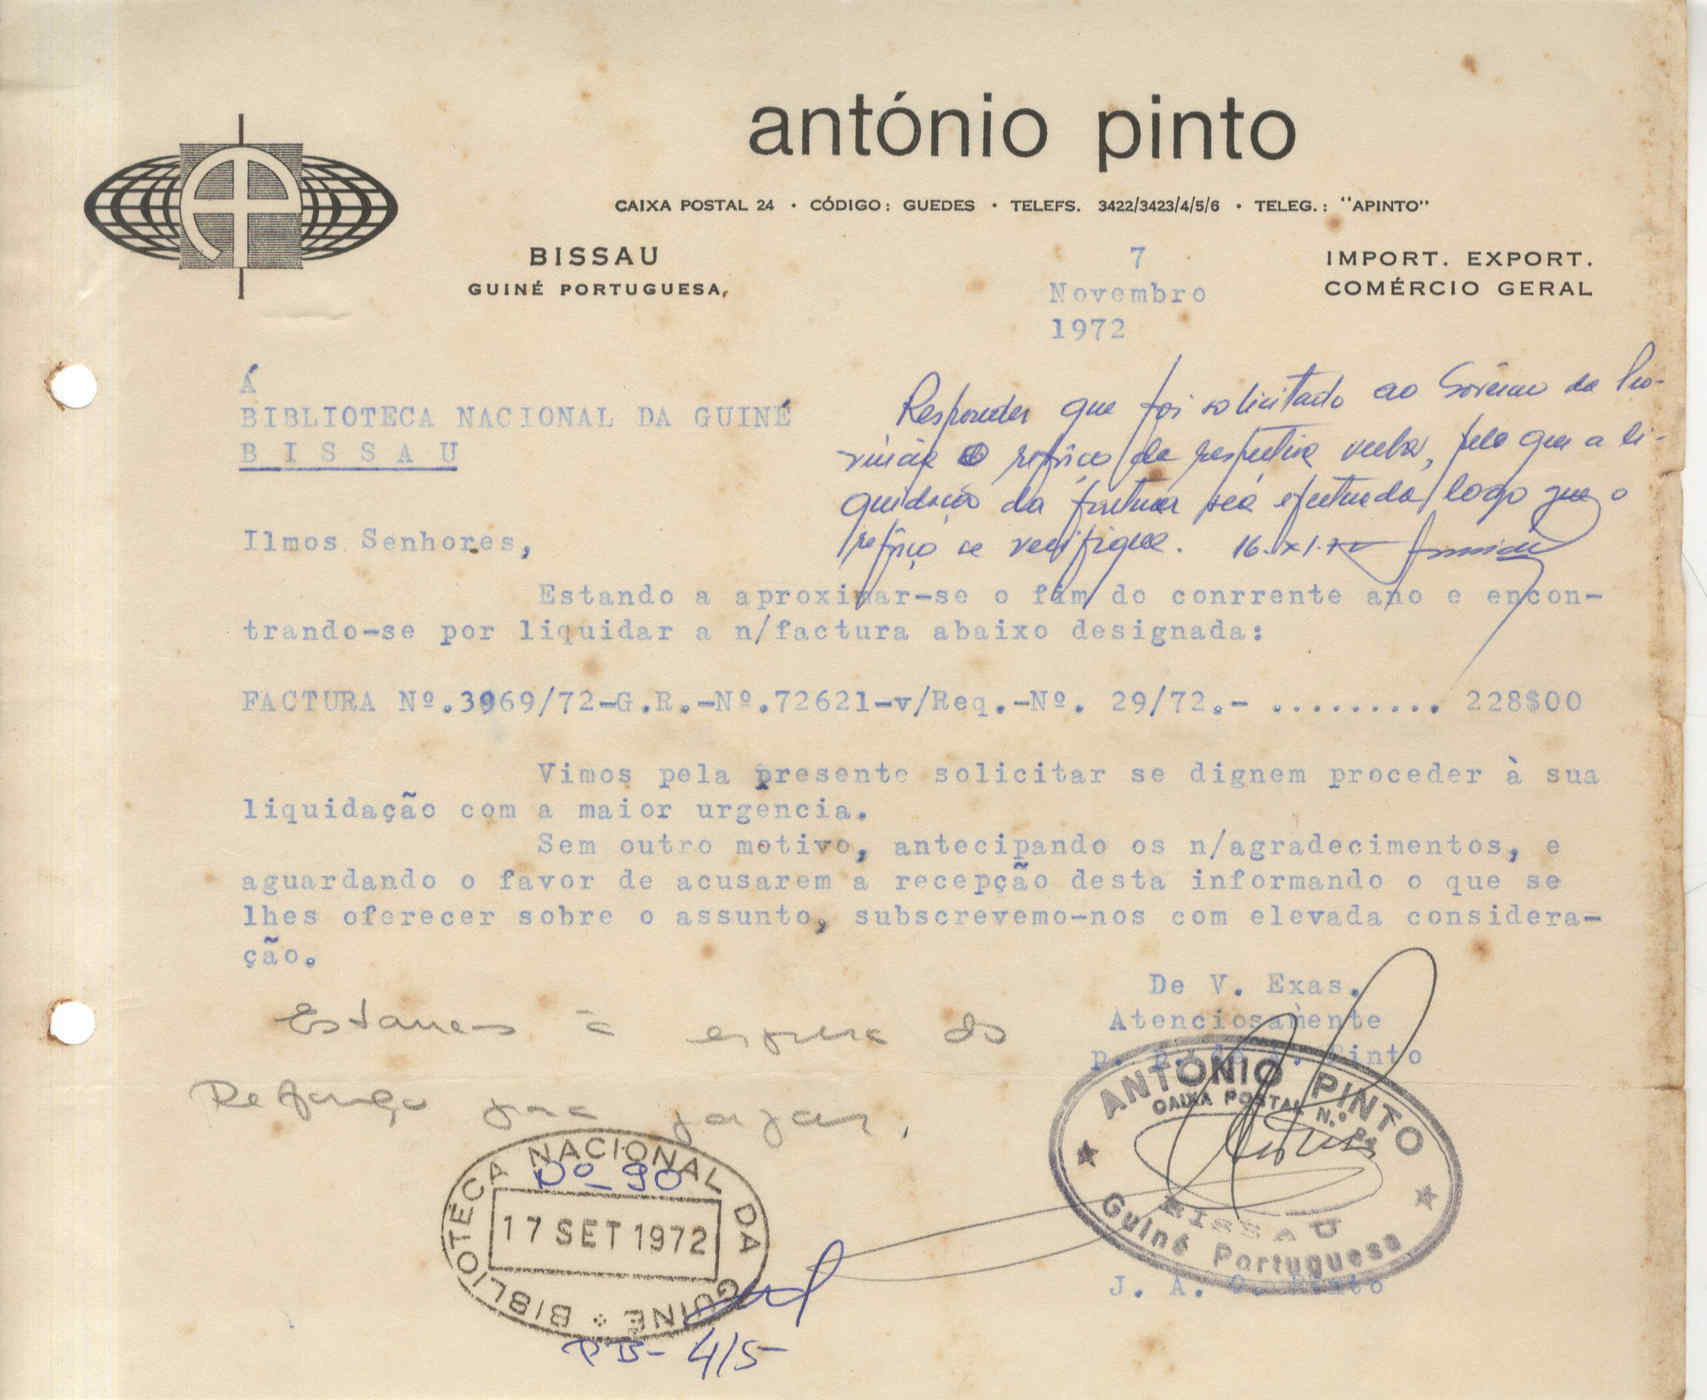 antónio pinto
CAIXA POSTAL 24 · CÓDIGO: GUEDES · TELEFS. 3422/3423/4/5/6 · TELEG.: "APINTO"
BISSAU
GUINÉ PORTUGUESA,
7
Novembro
1972
IMPORT. EXPORT.
COMÉRCIO GERAL
Á
BIBLIOTECA NACIONAL DA GUINÉ
B I S S A U
Responder que foi solicitado ao Govêrno da Pro-
víncia o refôrço da respectiva verba, pelo que a li-
quidação da factura será efectuada logo que o
refôrço se verifique. 16.XI.72
Ilmos Senhores,
Estando a aproximar-se o fim do conrrente ano e encon-
trando-se por liquidar a n/factura abaixo designada:
FACTURA Nº.3969/72-G.R.-Nº.72621-v/Req.-Nº. 29/72.- ......... 228$00
Vimos pela presente solicitar se dignem proceder à sua
liquidação com a maior urgencia.
Sem outro motivo, antecipando os n/agradecimentos, e
aguardando o favor de acusarem a recepção desta informando o que se
lhes oferecer sobre o assunto, subscrevemo-nos com elevada considera-
ção.
De V. Exas.
Atenciosamente
p. p. de A. Pinto
Estamos à espera do
Reforço para pagar.
ANTÓNIO PINTO
CAIXA POSTAL N.º 24
BISSAU
Guiné Portuguesa
J. A. C. Pinto
BIBLIOTECA NACIONAL DA GUINÉ
Nº_ 90
17 SET 1972
PB- 4/5